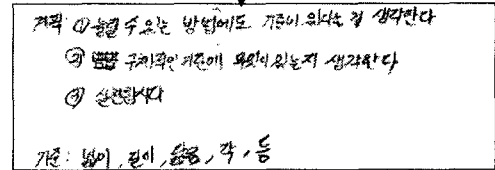 계획 ① 늘릴 수 있는 방법에도 기준이 있다는 걸 생각한다
② 구체적인 기준에 무엇이 있는지 생각한다
③ 실천합시다
기준: 넓이, 길이, 각, 등